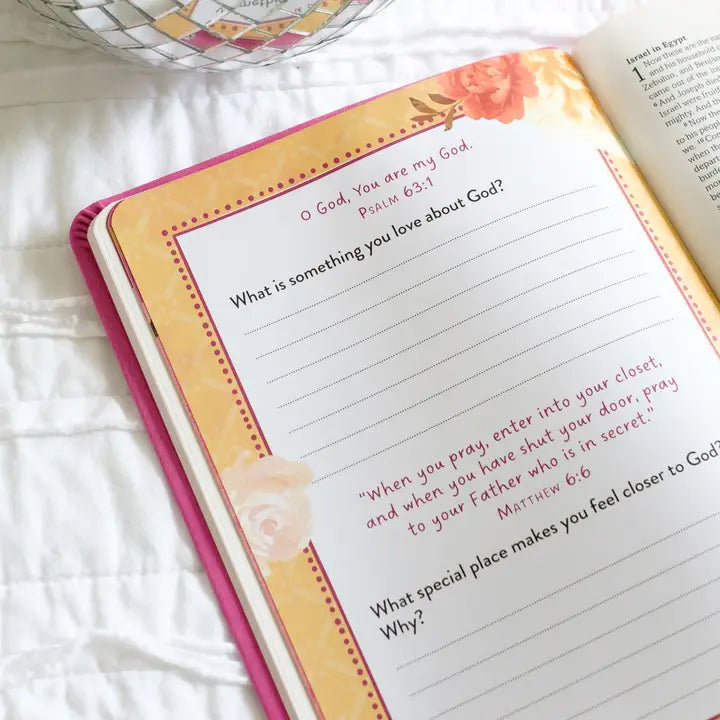 O God, You are my God.
Psalm 63:1
What is something you love about God?
"When you pray, enter into your closet,
and when you have shut your door, pray
to your Father who is in secret."
Matthew 6:6
What special place makes you feel closer to God?
Why?
Israel in Egypt
1 Now these are the na
and his household
Zebulun, and Benja
came out of the
And Joseph
Israel were fru
mighty. And
Now the
to his peop
we.
when the
depar
burde
more
be